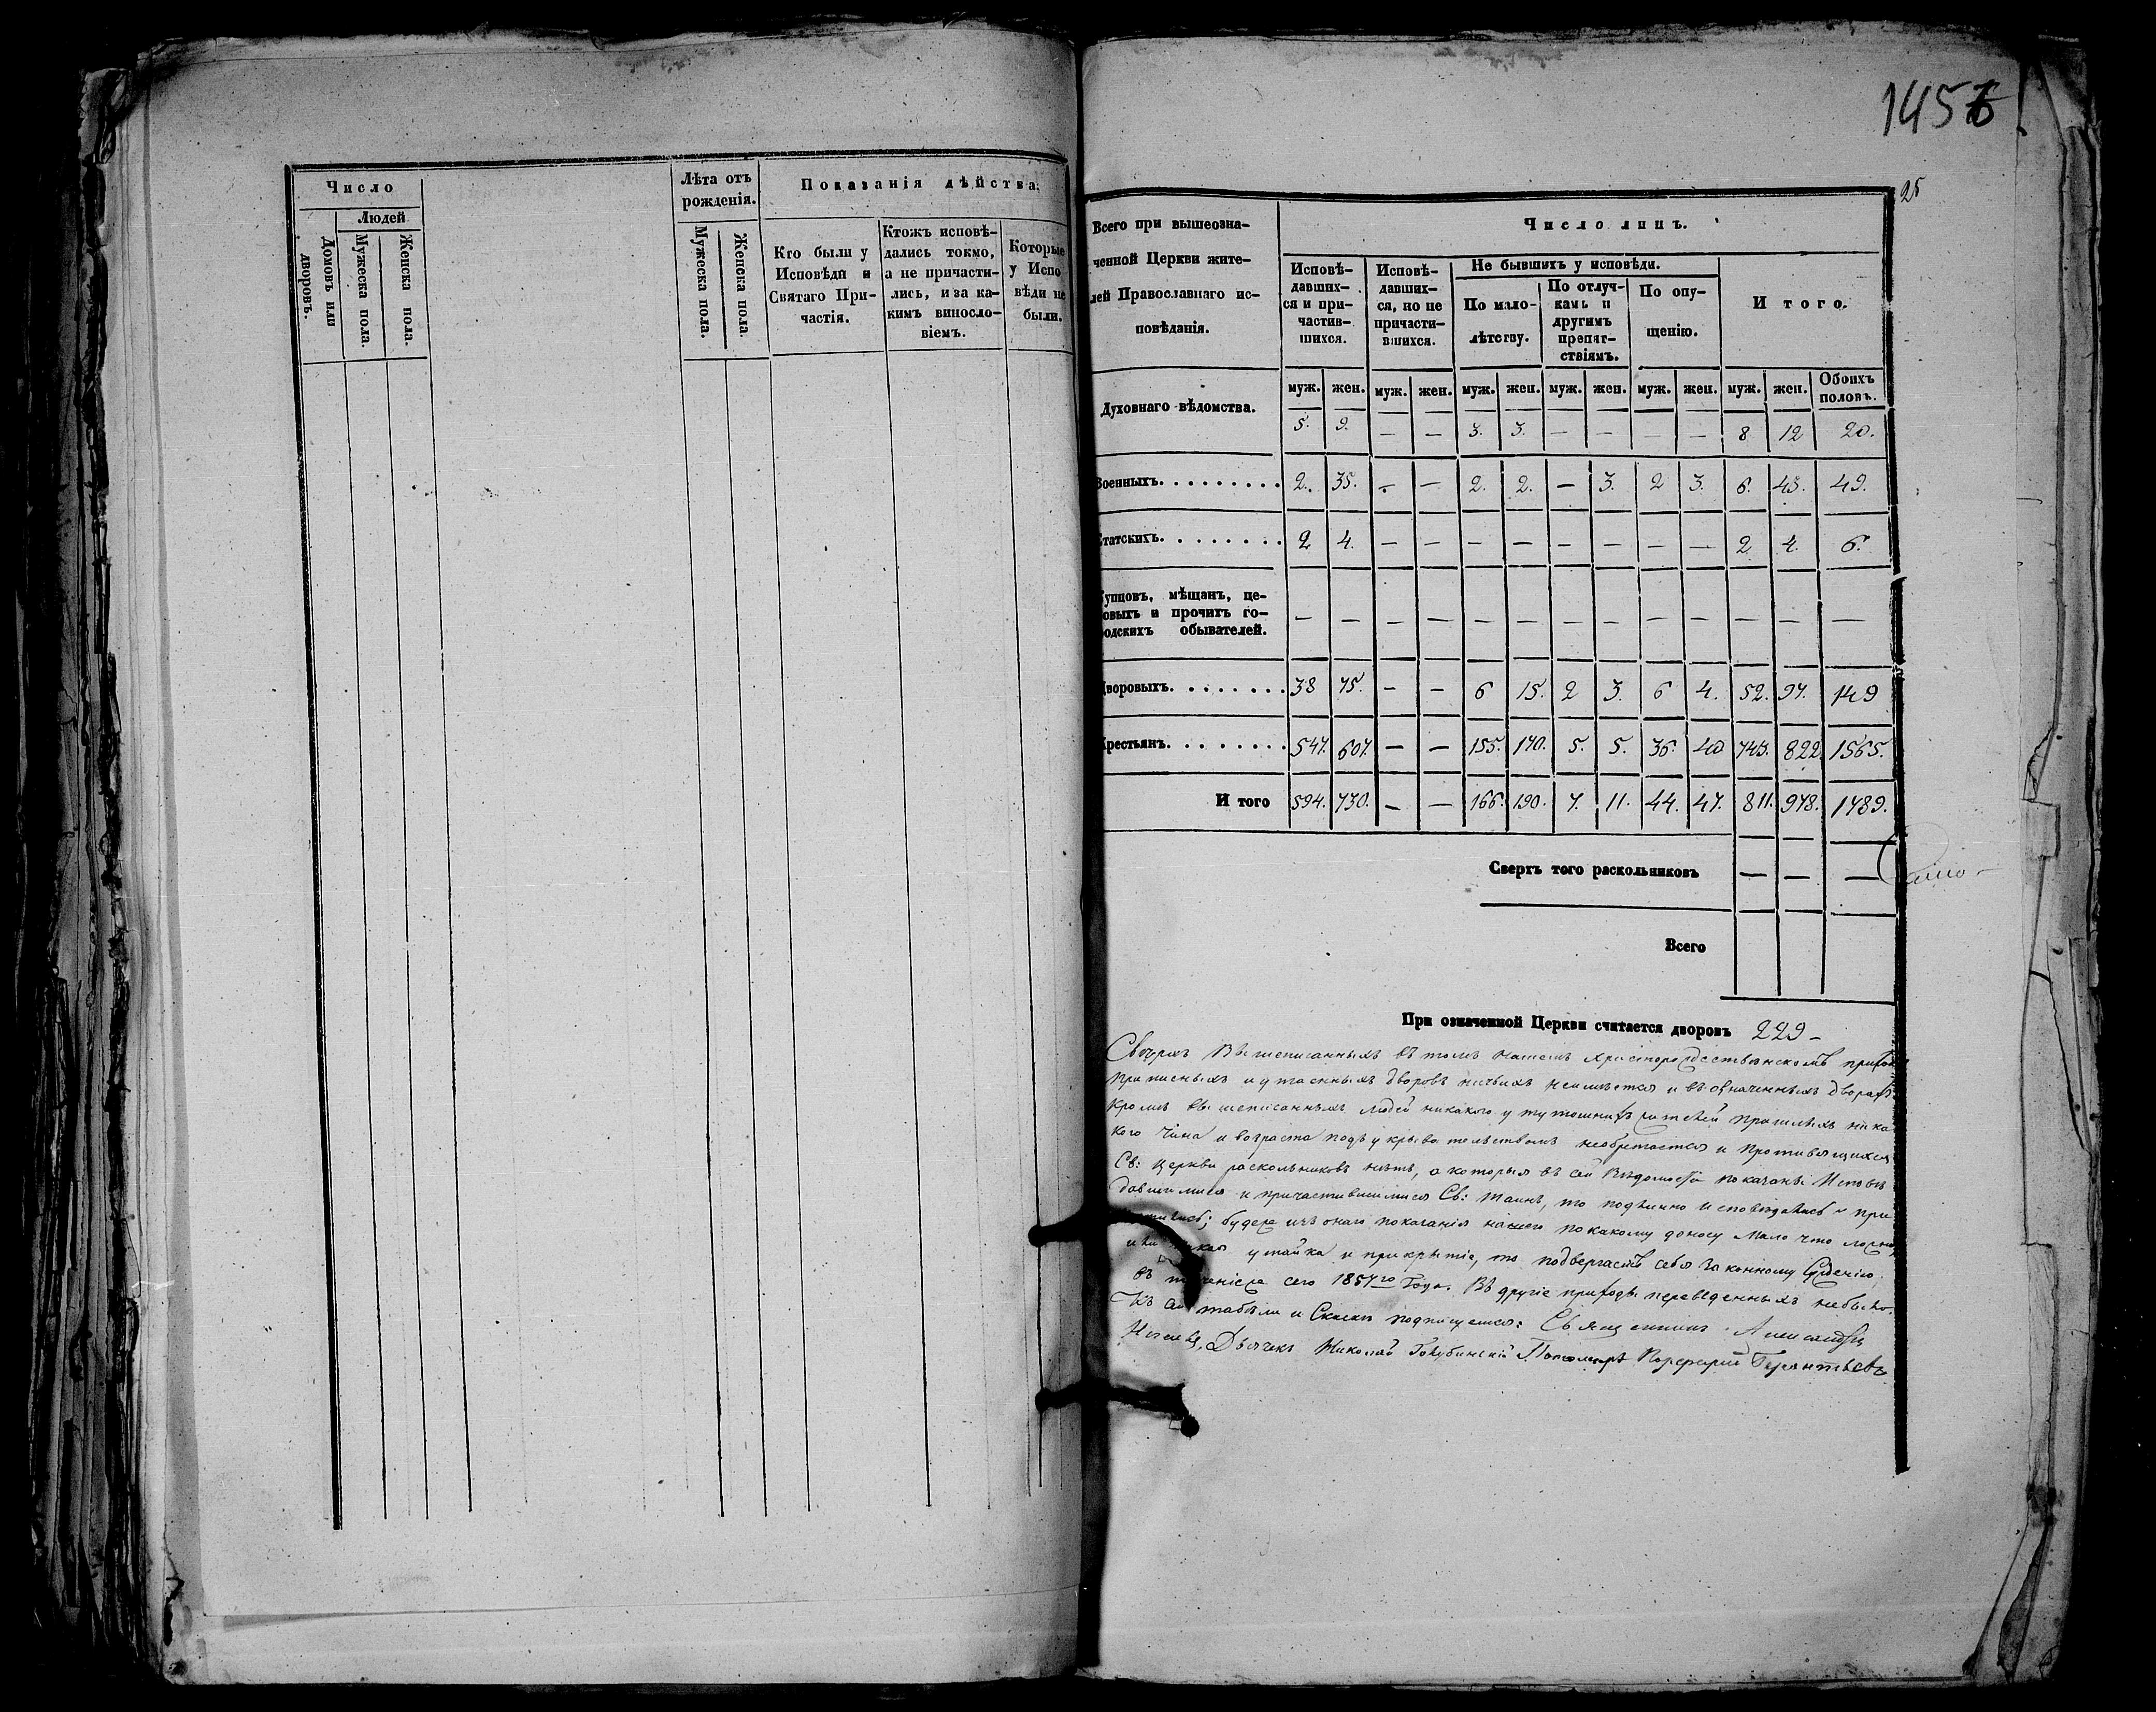 1456
25
Число
Людей
Домовъ или дворовъ.
Мужеска пола.
Женска пола.
Лѣта отъ рожденія.
Мужеска пола
Женска пола.
Показанія дѣйства.
Кто были у
Исповѣди и
Святаго При-
частія.
Ктожъ исповѣ-
дались токмо,
а не причасти-
лись, и за ка-
кимъ винсло-
віемъ.
Которые
у Испо
вѣди не
были.
Всего при вышеозна-
ченной Церкви жите-
лей Православнаго ис-
повѣданія.
Число лицъ.
Исповѣ-
давших-
ся и при-
частив-
шихся.
Исповѣ-
давших-
ся, но не
причасти-
вшихся.
Не бывшихъ у исповѣди.
По мало-
лѣтству.
По отлуч-
камъ и
другимъ
препят-
ствіямъ.
По опу-
щенію.
Итого.
муж. жен. муж. жен. муж. жен. муж. жен. муж. жен. муж. жен. Обоихъ половъ.
Духовнаго вѣдомства. 5. 9. — — 3. 3. — — — — 8 12 20.
Военныхъ. 2. 35. — — 2. 2. — 3. 2 3. 6. 43. 49.
Статскихъ. 2 4. — — — — — — — — 2 4. 6.
Купцовъ, мѣщанъ, це-
ховыхъ и прочихъ го-
родскихъ обывателей. — — — — — — — — — — — — —
Дворовыхъ. 38 75. — — 6 15. 2 3. 6 4. 52. 97. 149
Крестьянъ. 547. 607. — — 155. 170. 5. 5. 36. 40 743. 822. 1565.
И того 594. 730. — — 166. 190. 7. 11. 44. 47. 811. 978. 1789.
Сверхъ того раскольниковъ — — —
Всего
При означенной Церкви считается дворовъ 229 –
Сверхъ вышеписанныхъ въ томъ нашемъ Христорождественскомъ приход
приписныхъ и утаенныхъ дворовъ ничьихъ неимѣется и въ означенныхъ дворахъ
кромѣ вышеписанныхъ людей никакого у тутошнихъ жителей пришлыхъ ника
кого чина и возраста подъ укрывательствомъ необретается и противящихся
Св: Церкви раскольниковъ нѣтъ, а которыя въ сей Вѣдомости показаны Исповѣ
давшимися и причастившимися Св: таинъ, то подлинно исповѣдались и при
будеже изъ онаго показанія нашего по какому доносу мало что
или утайка и прикрытіе, то подвергаемъ себя законному сужденію.
въ сего 1857го Года. Въ другіе приходы переведенныхъ небыло.
Къ сей табели и Сказкѣ подписуемся: Священникъ Александръ
Дьячекъ Николай Голубинскій Пономарь Порфирій Терентьевъ